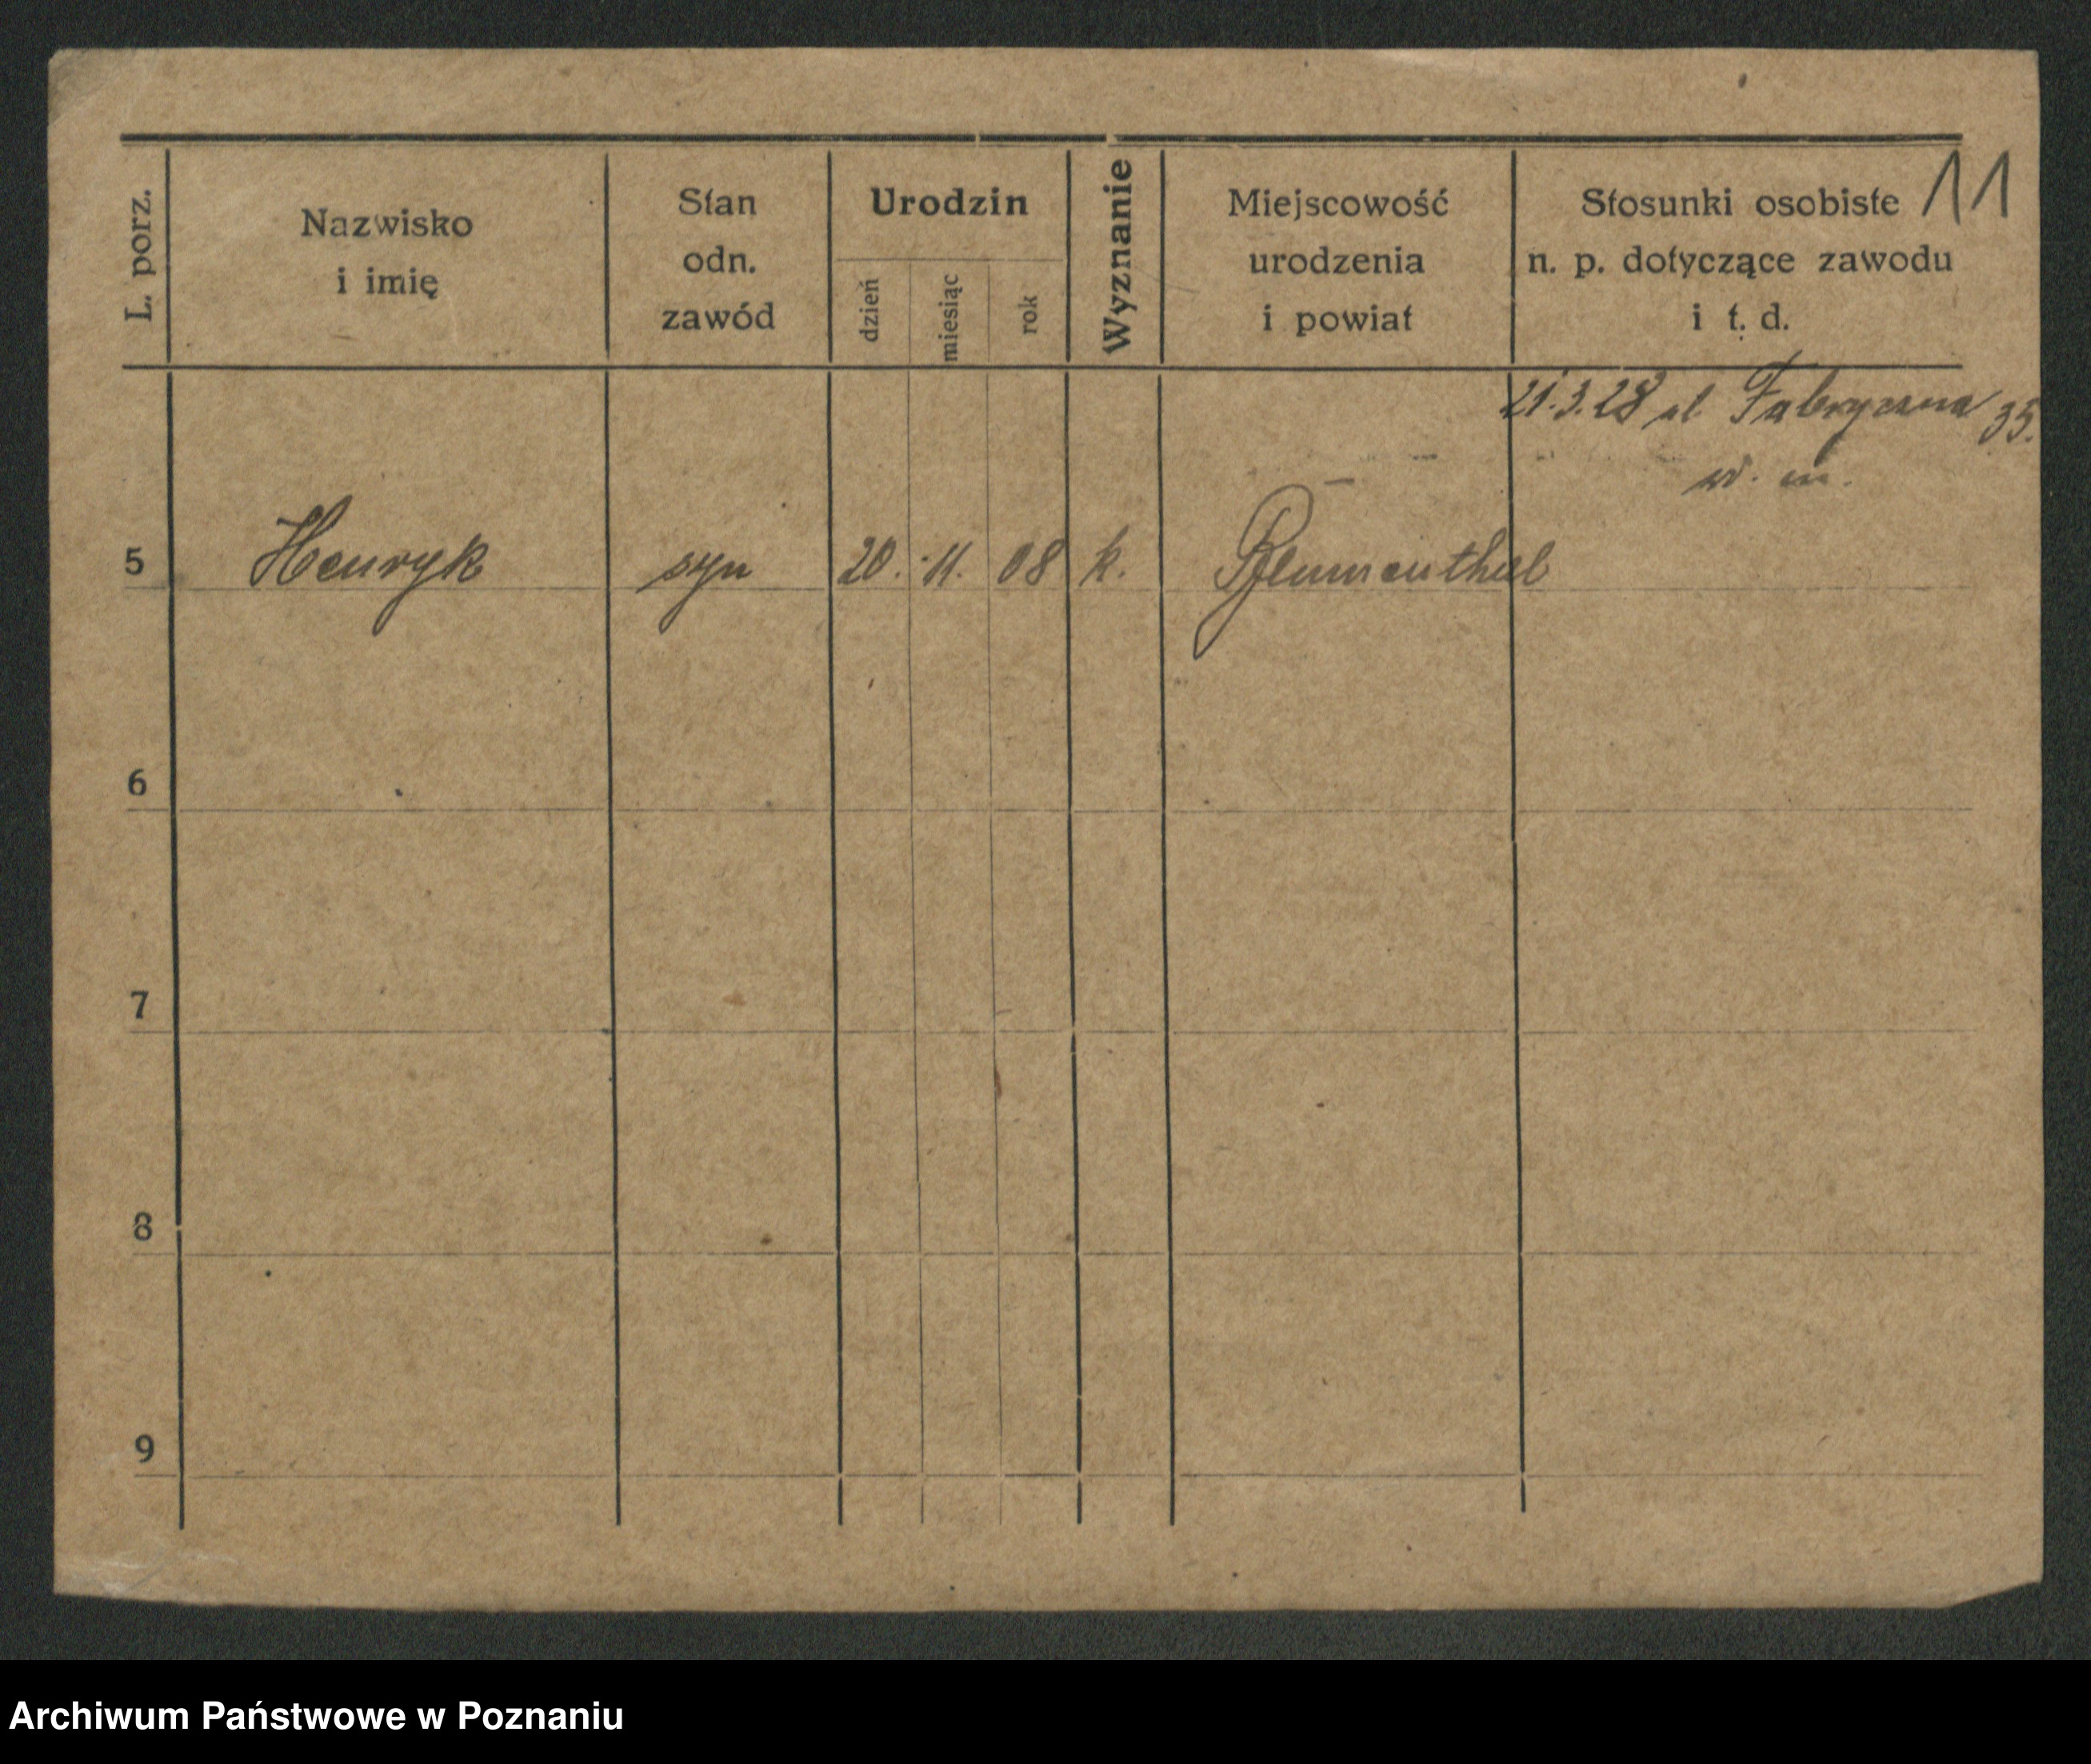 11
L. porz.
Nazwisko
i imię
Stan
odn.
zawód
Urodzin
dzień
miesiąc
rok
Wyznanie
Miejscowość
urodzenia
i powiat
Stosunki osobiste
n. p. dotyczące zawodu
i t. d.
21.3.28 ul Fabryczna 35.
w. m.
5 Henryk syn 20. 11. 08 k.
6
7
8
9
Archiwum Państwowe w Poznaniu